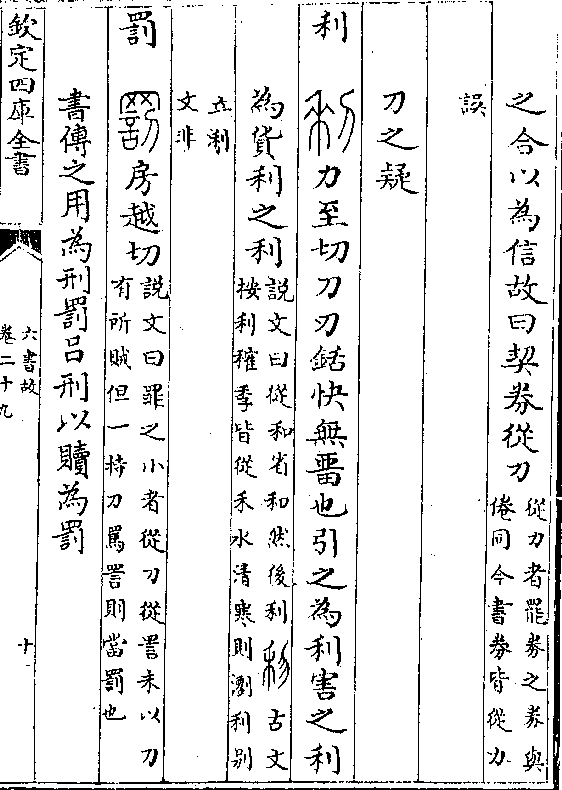 之合以為信故曰契券從刀
從刀者罷券之券與
倦同今書券皆從力
誤
刀之疑
利 力至切刀刃銛快無畱也引之為利害之利
為貨利之利
説文曰從和省和然後利古文
按利季皆從禾水清寒則瀏利别
立瀏
文非
罰 房越切
説文曰罪之小者從刀從詈未以刀
有所賊但一持刀罵詈則當罰也
書傳之用為刑罰吕刑以贖為罰
欽定四庫全書
六書故
卷二十九
十